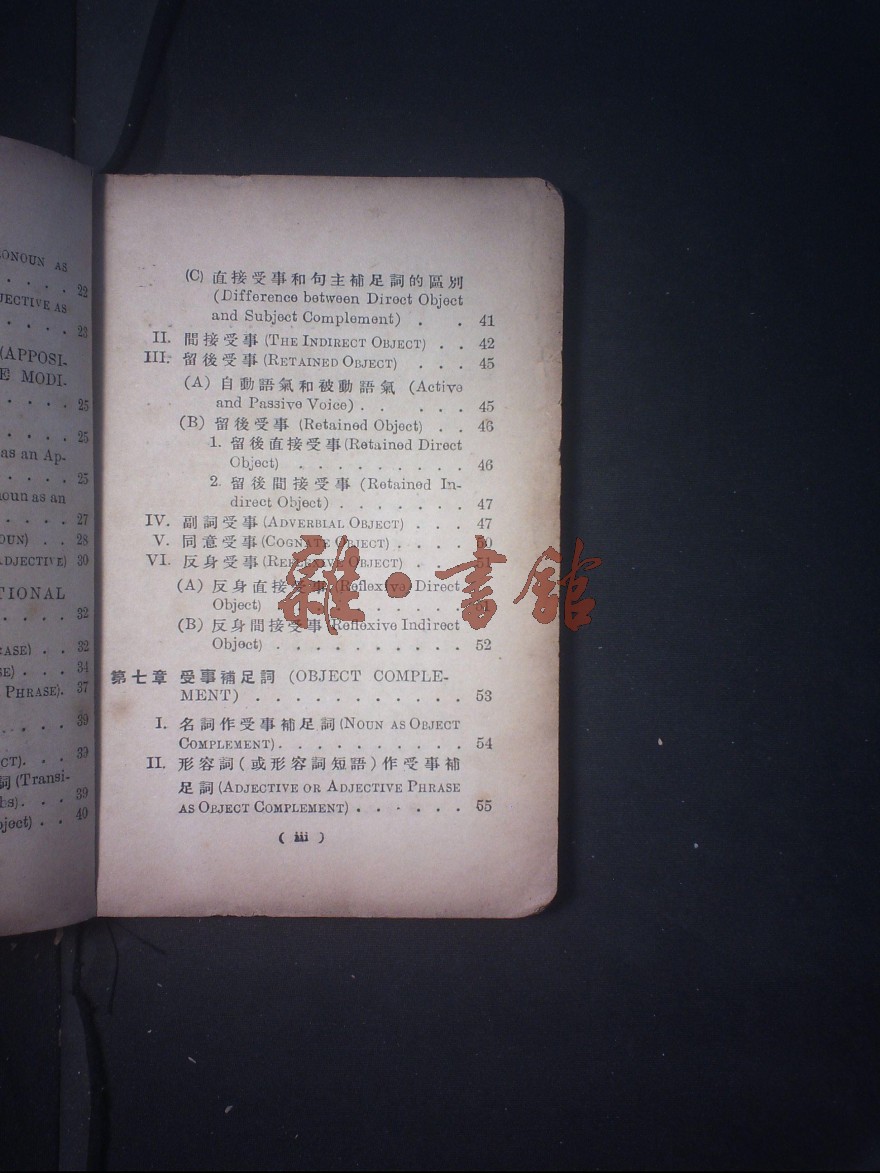 ONOUN AS
. . . . 22
JECTIVE AS
. . . . 23
(APPOSI-
E MODI-
. . . . 25
. . . . 25
as an Ap-
. . . . 25
noun as an
. . . . 27
OUN) . . 28
ADJECTIVE) 30
TIONAL
. . . . 32
RASE) . . 32
SE) . . . 34
PHRASE). 37
. . . . 39
CT). . . 39
詞 (Transi-
bs). . . 39
bject) . . 40
(C) 直接受事和句主補足詞的區別
(Difference between Direct Object
and Subject Complement) . . . 41
II. 間接受事 (THE INDIRECT OBJECT) . . 42
III. 留後受事 (RETAINED OBJECT) . . . 45
(A) 自動語氣和被動語氣 (Active
and Passive Voice) . . . . . . 45
(B) 留後受事 (Retained Object) . . 46
1. 留後直接受事 (Retained Direct
Object) . . . . . . . . . 46
2. 留後間接受事 (Retained In-
direct Object) . . . . . . . 47
IV. 副詞受事 (ADVERBIAL OBJECT) . . . 47
V. 同意受事 (COGNATE OBJECT) . . . . 50
VI. 反身受事 (REFLEXIVE OBJECT) . . . 51
(A) 反身直接受事 (Reflexive Direct
Object) . . . . . . . . . . 51
(B) 反身間接受事 (Reflexive Indirect
Object) . . . . . . . . . . 52
第七章 受事補足詞 (OBJECT COMPLE-
MENT) . . . . . . . . . . . 53
I. 名詞作受事補足詞 (NOUN AS OBJECT
COMPLEMENT) . . . . . . . . . . 54
II. 形容詞 (或形容詞短語) 作受事補
足詞 (ADJECTIVE OR ADJECTIVE PHRASE
AS OBJECT COMPLEMENT) . . . . . . 55
( iii )
雜·書館